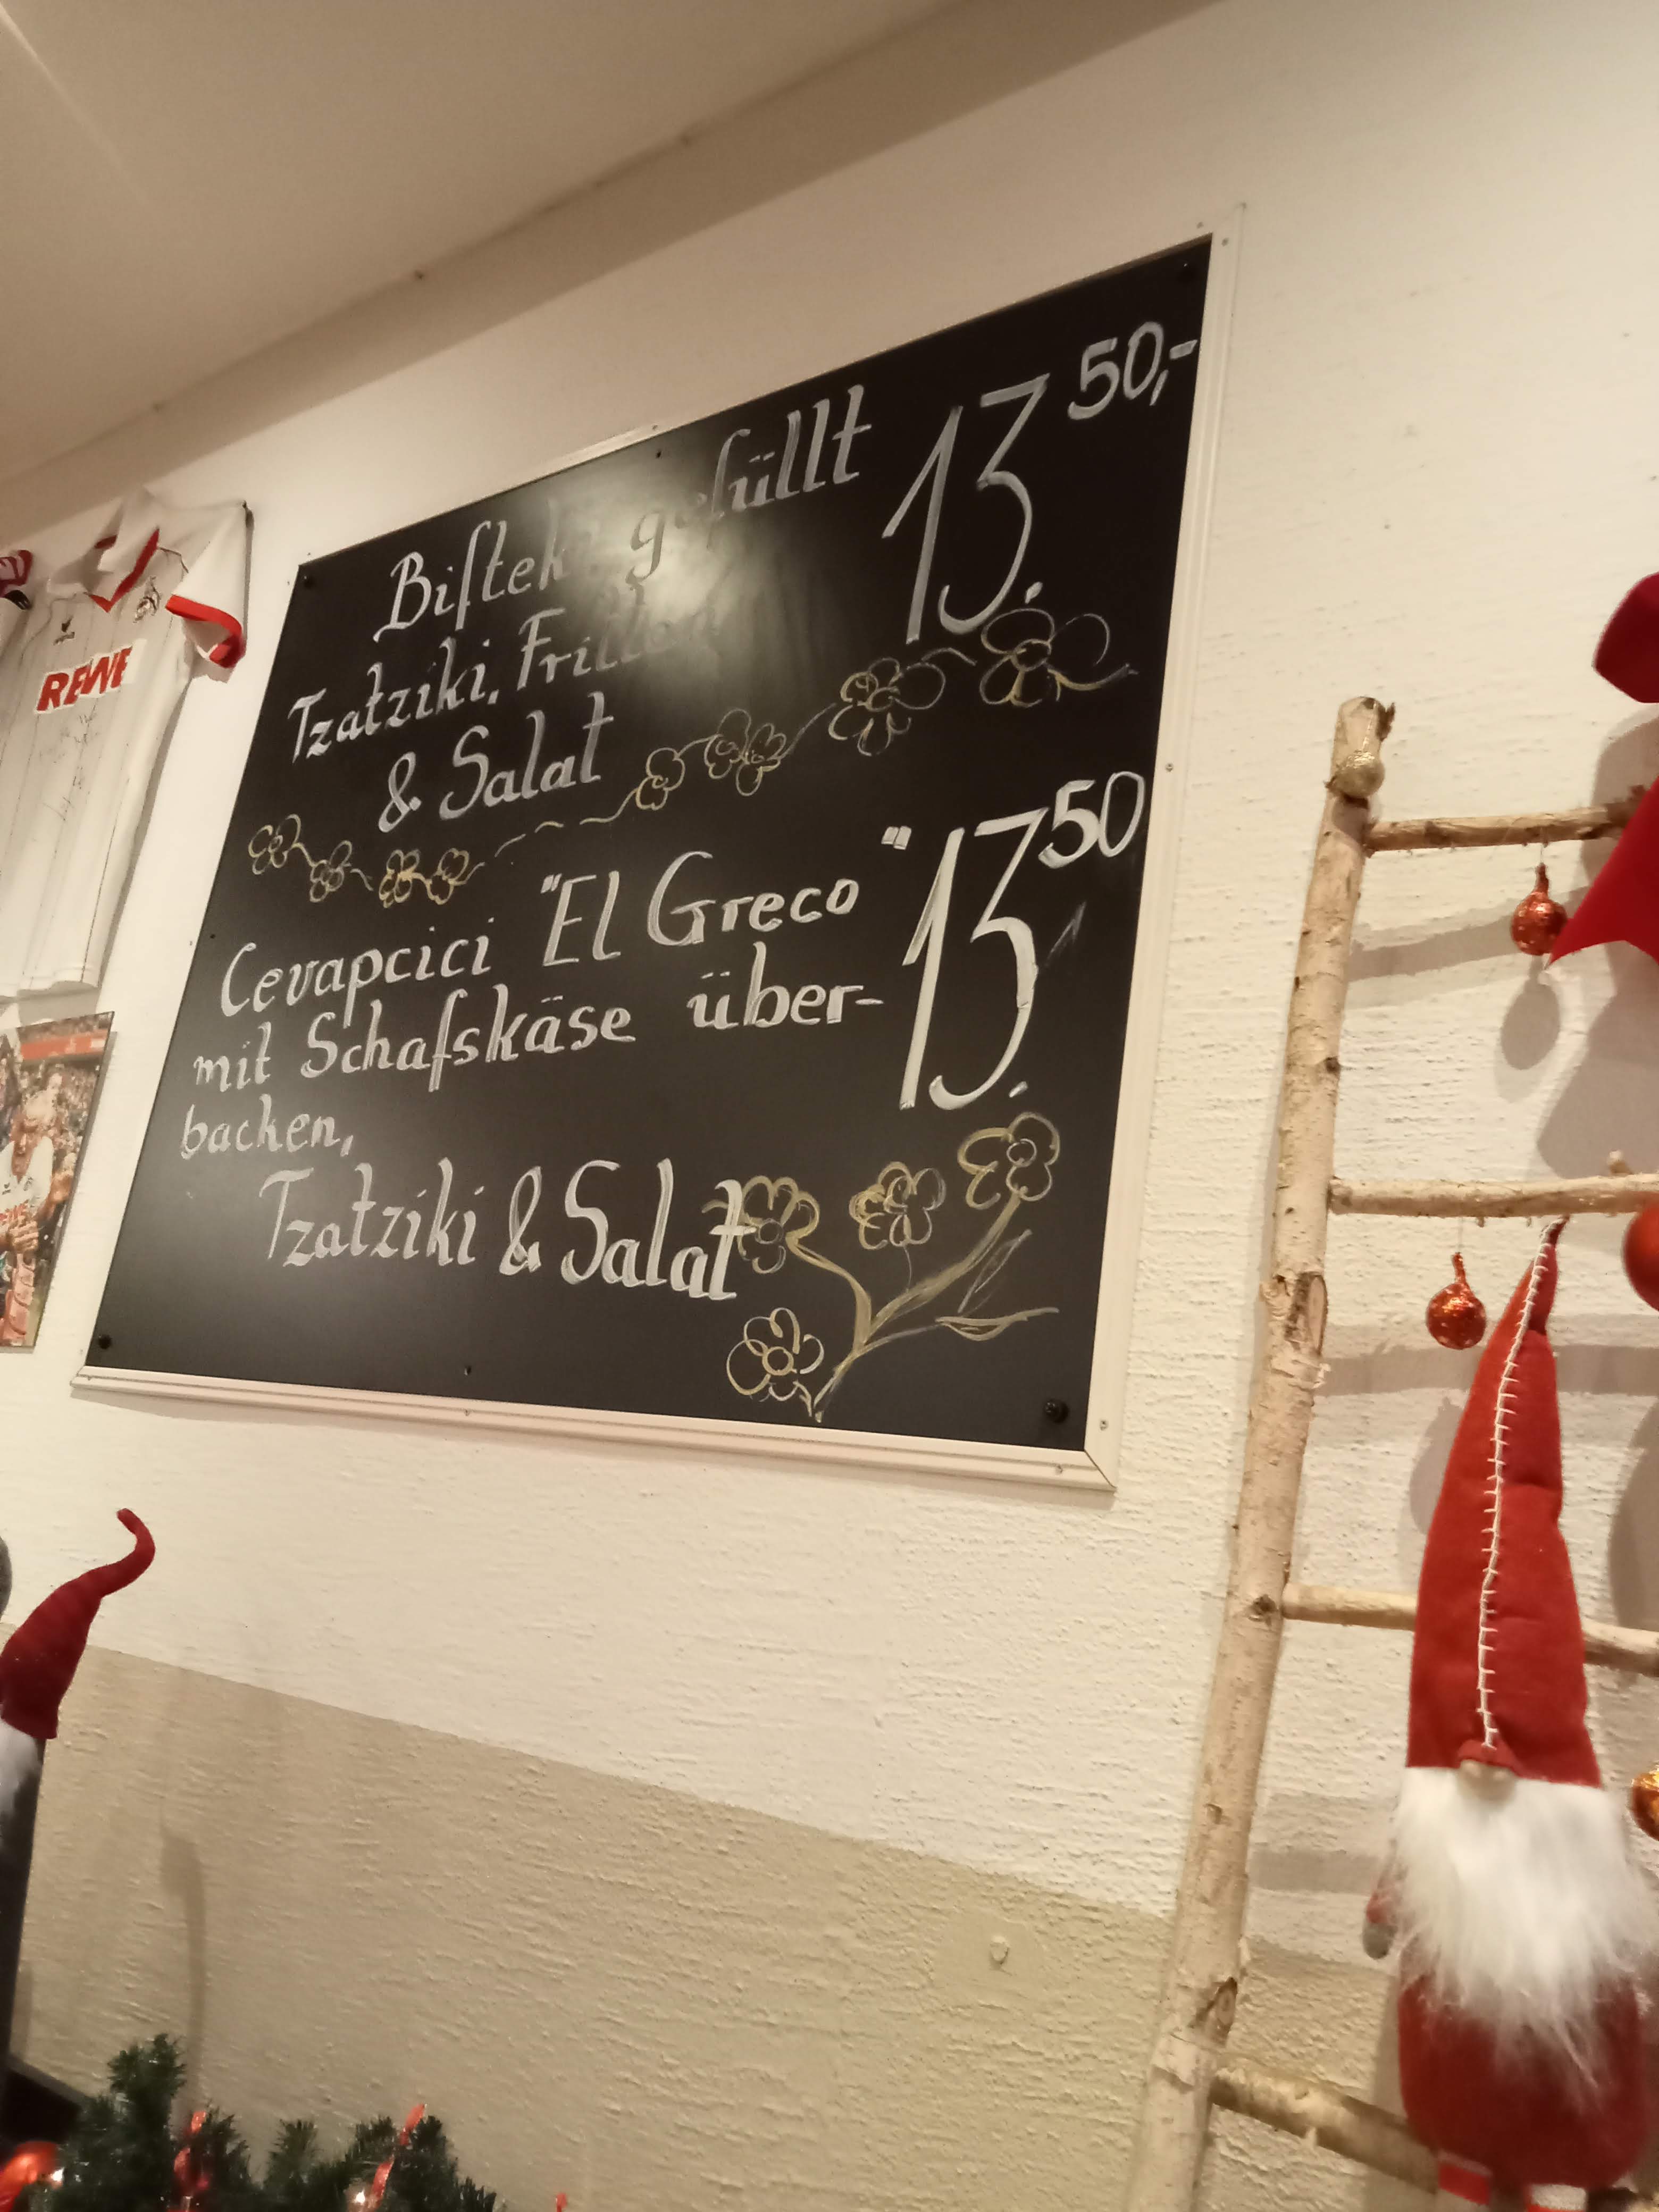 REWE
Bifteki gefüllt 13.50,-
Tzatziki, Fritten
& Salat
Cevapcici "El Greco" 13.50
mit Schafskäse über-
backen,
Tzatziki & Salat